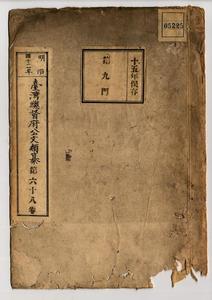 05225
十五年保存
第九門
明治
四十二年
臺灣總督府公文類纂第六十八卷